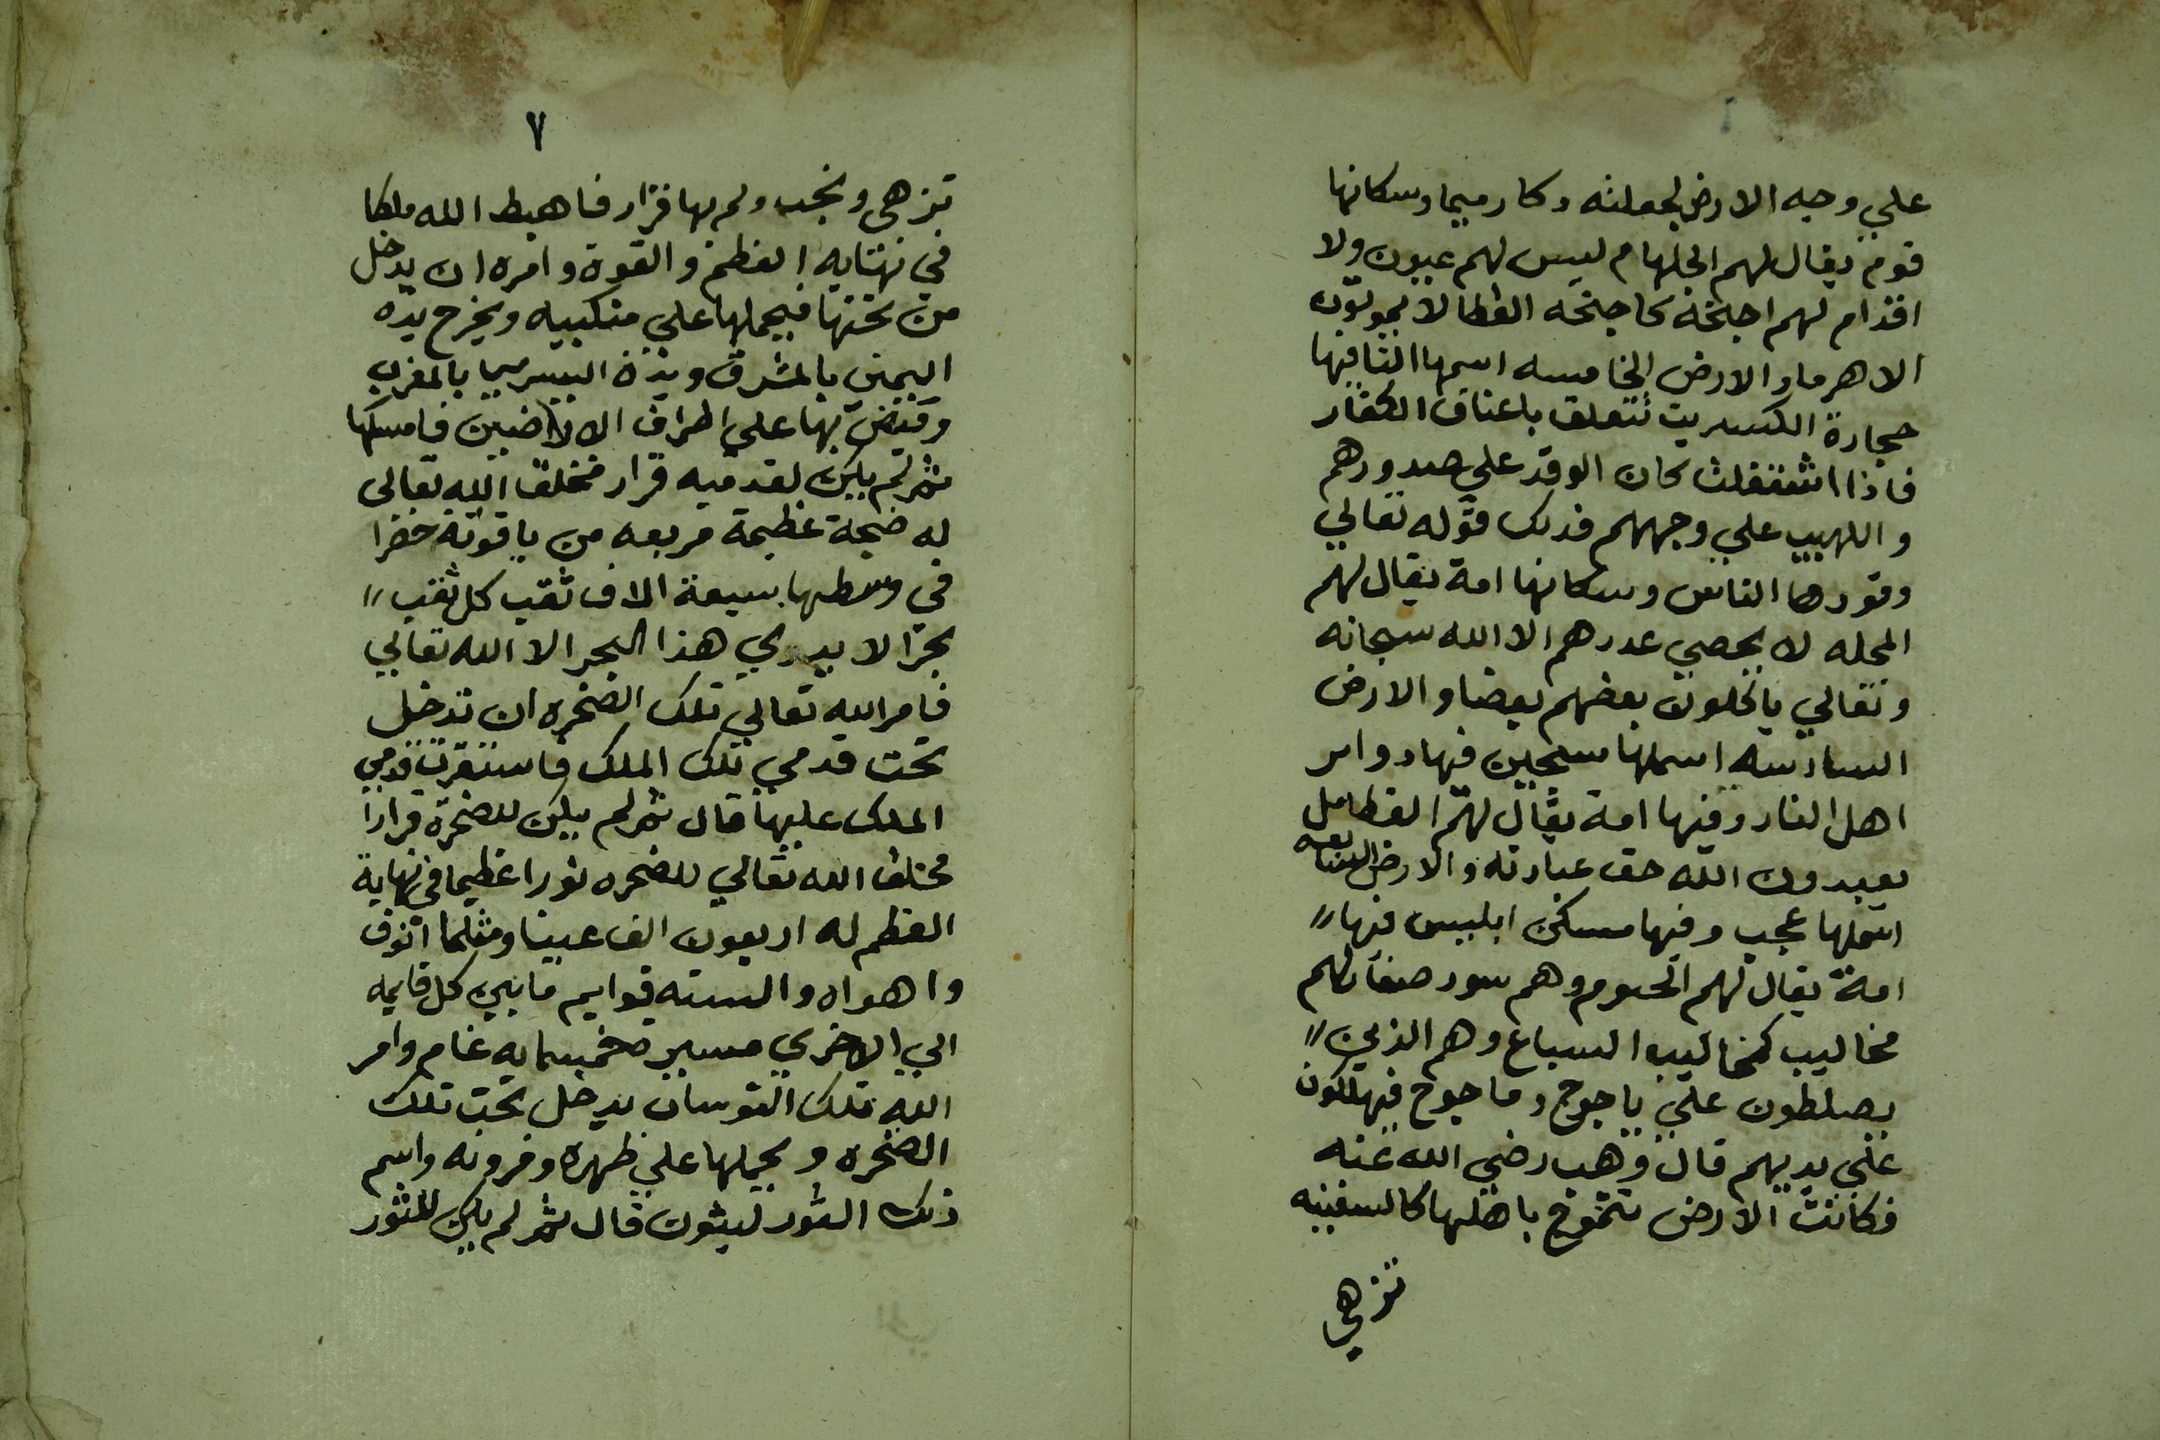 علي وجه الارض لجعلته دكا رميما وسكانها
قوم يقال لهم الجلهام ليس لهم عيون ولا
اقدام لهم اجنحة كاجنحه القطا لا يموتون
الا هرما والارض الخامسه اسمها الثا فيها
حجارة الكبريت تتعلق باعناق الكفار
فاذا اشتعلت كان الوقد على صدورهم
واللهيب علي وجههم فدلك قوله تعالي
وقودها الناس وسكانها امة يقال لهم
المحله لا يحصي عددهم الا الله سبحانه
وتعالي ياكلون بعضهم بعضا والارض
السادسه اسمها سجين فيها دوابر
اهل النار وفيها امة يقال لهم القطامل
يعبدون الله حق عبادته والارض السابعه
اسمها عجيب وفيها مسكن ابليس فيها
امة يقال لهم الحسوم وهم سود صفاتهم
مخاليب كمخاليب السباع وهم الذين
يصلطون علي ياجوج وماجوج فيهلكون
علي يديهم قال وهب رضي الله عنه
فكانت الارض تتموج باهلها كالسفينه
تزهي
٧
تزهى وتجب ولم بها قرار فاهبط الله ملكا
في نهتايه العظم والقوة وامره ان يدخل
من تحتها فيحملها علي منكبيه ويخرج يده
اليمين بالمشرق ويده اليسري بالمغرب
وقبض بها علي اطراف الاراضين فامسكها
ثم لم يكن لقدميه قرار فخلق الله تعالى
له ضجة عظيمة مربعه من ياقوتة خضرا
في وسطها سبعة الاف ثقب كل ثقب
بحرا لا يدري هذا البحر الا الله تعالي
فامر الله تعالي تلك الصخره ان تدخل
تحت قدمي تلك الملك فاستقرت قدمي
الملك عليها قال ثم لم يكن للصخرة قرارا
فخلق الله تعالي للصخره ثورا عظيما في نهاية
العظم له اربعون الف عينا ومثلها انوف
وافواه والسته قوايم ما بين كل قايمه
الي الاخري مسير خمسمايه عام وامر
الله تلك الثور ان يدخل تحت تلك
الصخره ويحملها علي ظهره وقرونه واسم
ذلك الثور ليثون قال ثم لم يكن للثور